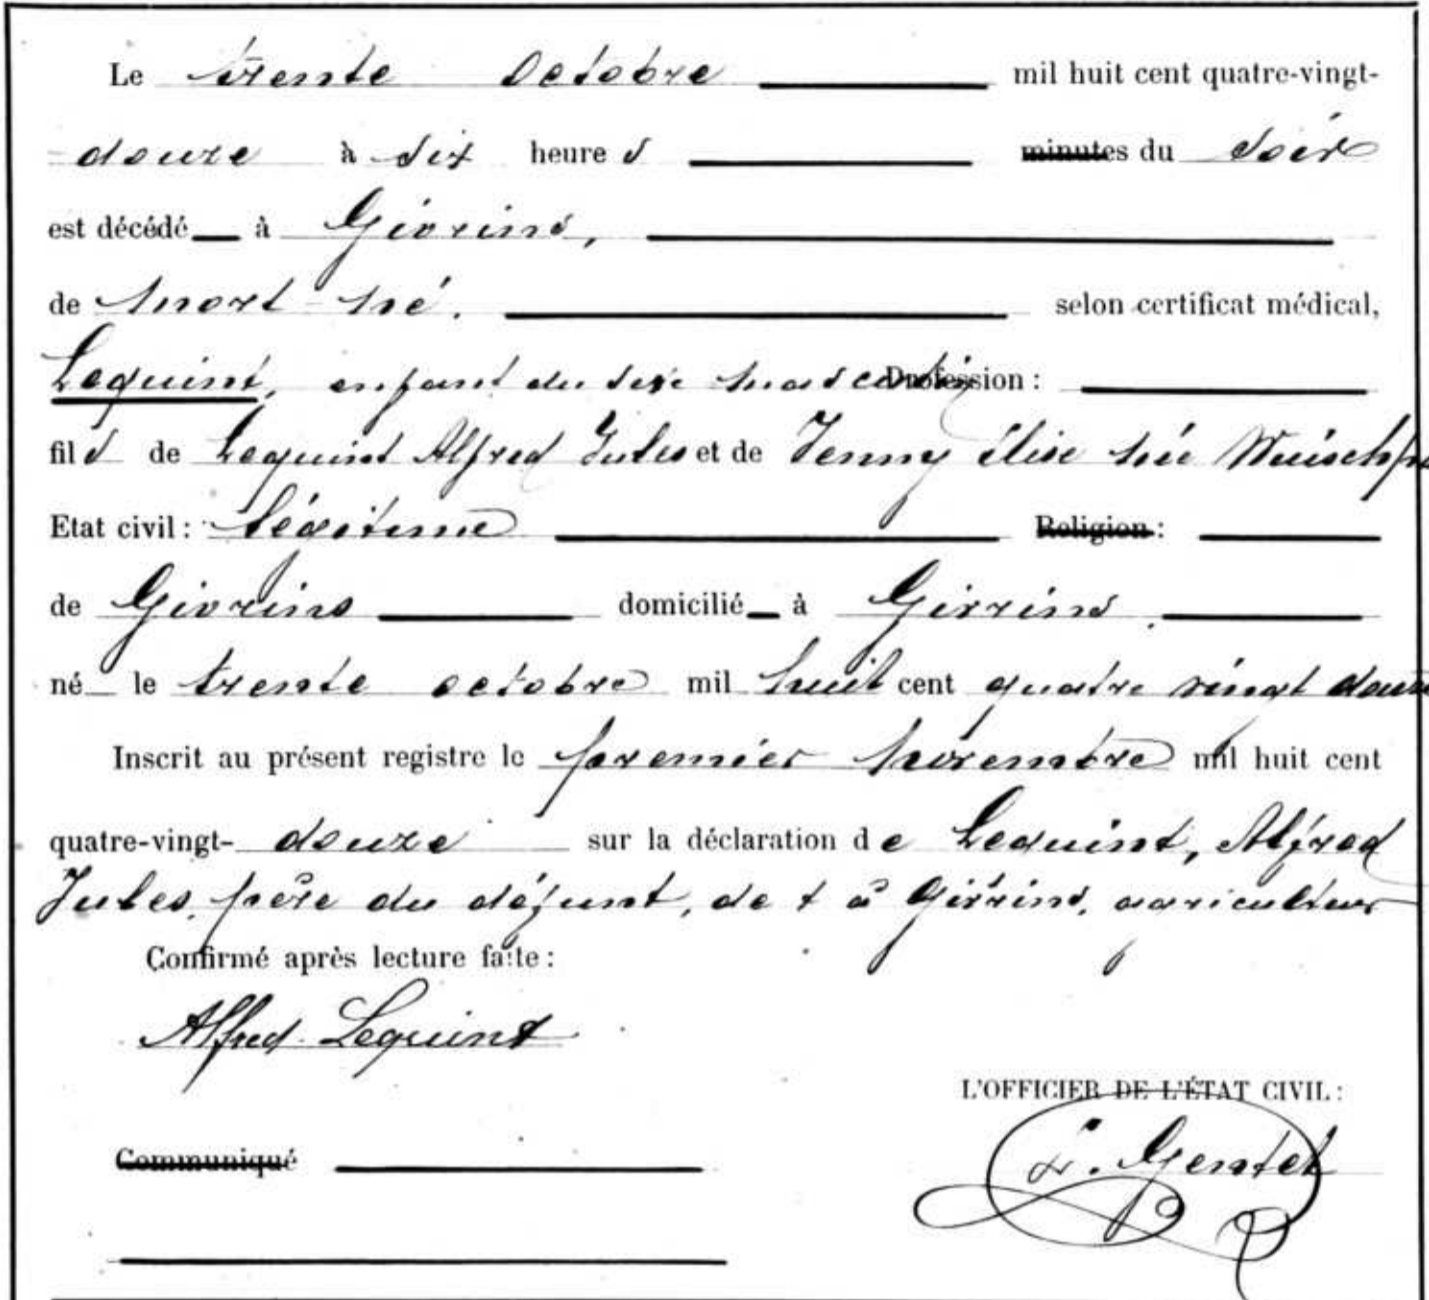 Le trente Octobre mil huit cent quatre-vingt-
douze à six heures minutes du soir
est décédé à Givrins,
de mort-né. selon certificat médical,
Lequint, enfant du sexe masculin Profession :
fils de Lequint Alfred Jules et de Jenny Elise née
Etat civil : Légitime Religion :
de Givrins domicilié à Givrins.
né le trente octobre mil huit cent quatre vingt douze
Inscrit au présent registre le premier novembre mil huit cent
quatre-vingt-douze sur la déclaration de Lequint, Alfred
Jules, père du défunt, de & à Givrins, agriculteur
Confirmé après lecture faite :
Alfred Lequint
L'OFFICIER DE L'ÉTAT CIVIL :
Communiqué